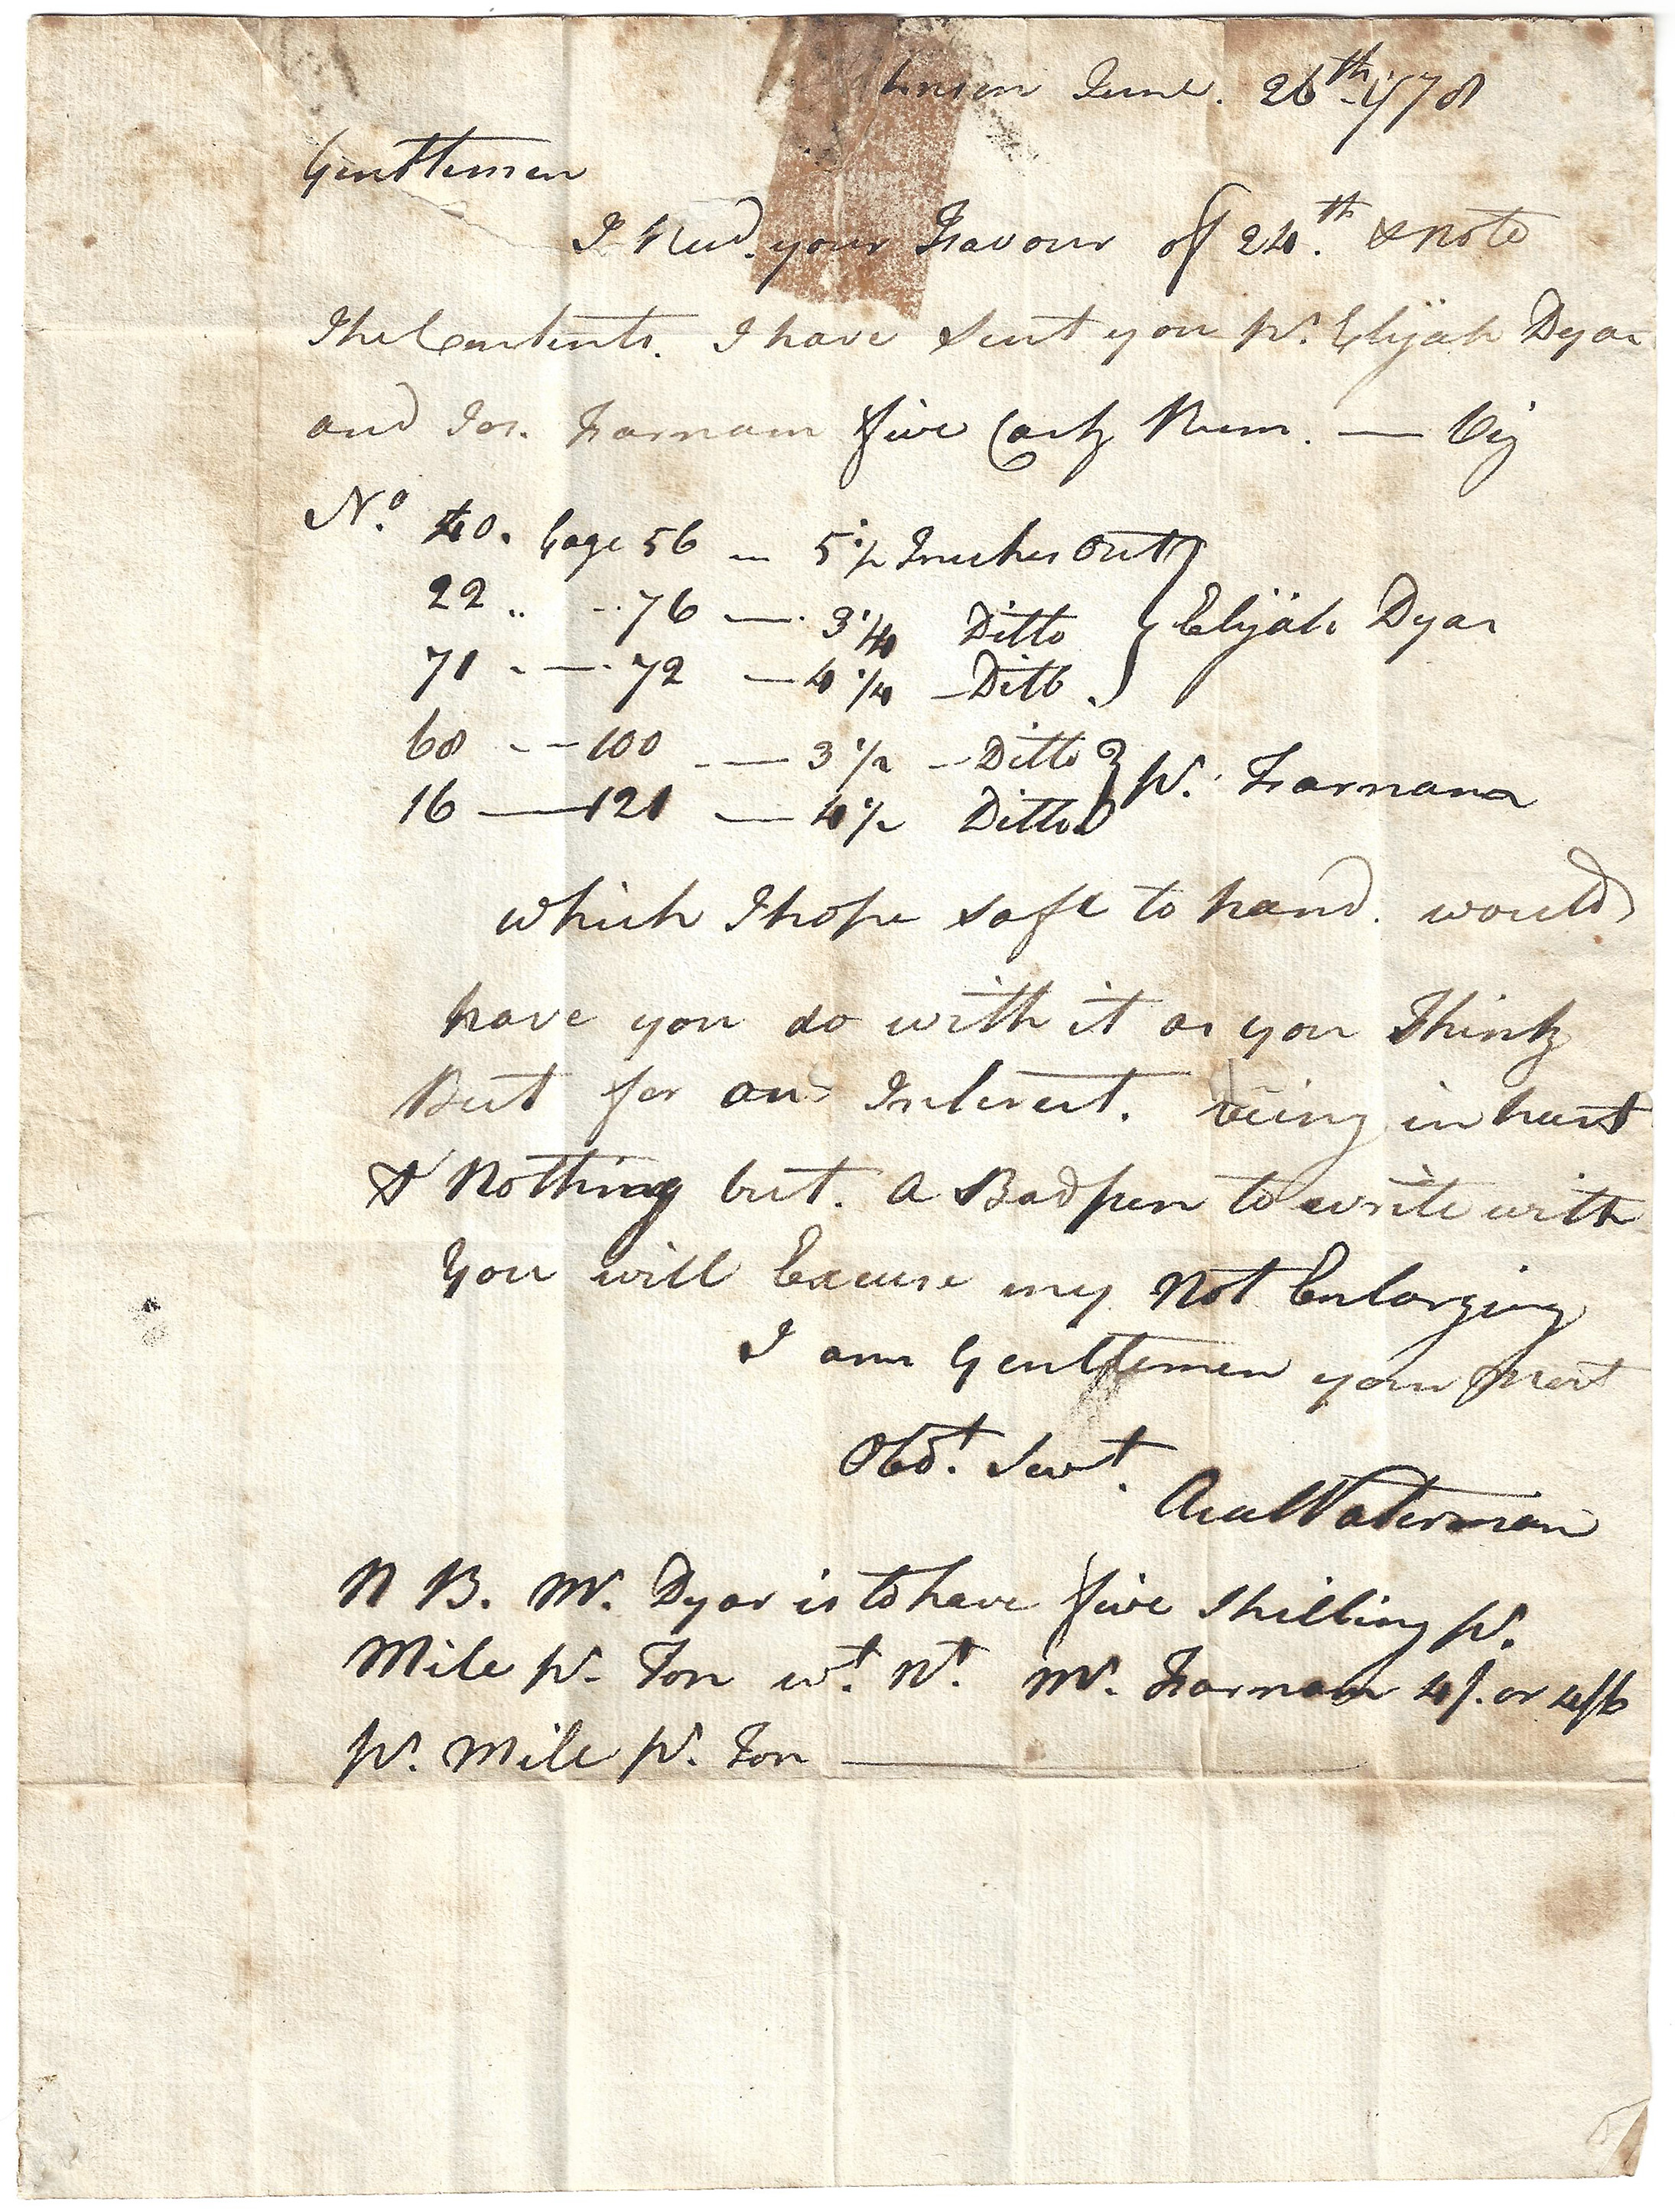 June. 26th 1778
Gentlemen
I Recd. your Favour of 24.th & note
The Contents. I have Sent you pr. Elijah Dyar
and Jos. Farnam five Cask Rum. — Viz
No. 40. Gage 56 — 5 1/2 Inches Out
22 .. -- 76 — 3 1/4 Ditto } Elijah Dyar
71 - — 72 — 4 1/4 – Ditto
68 - – 100 — 3 1/2 – Ditto } pr. Farnam
16 — 121 — 4 1/2 Ditto
which I hope safe to hand. would
have you do with it as you Think
Best for our Interest. being in hast
& Nothing but. a Bad pen to write with
You will Excuse my Not Enlarging
I am Gentlemen your Most
Obdt. Servt.
Asa Waterman
N B. Mr. Dyar is to have five Shilling pr.
Mile pr. Ton wt. Nt. Mr. Farnam 4/. or 4/6
pr. Mile pr. Ton —